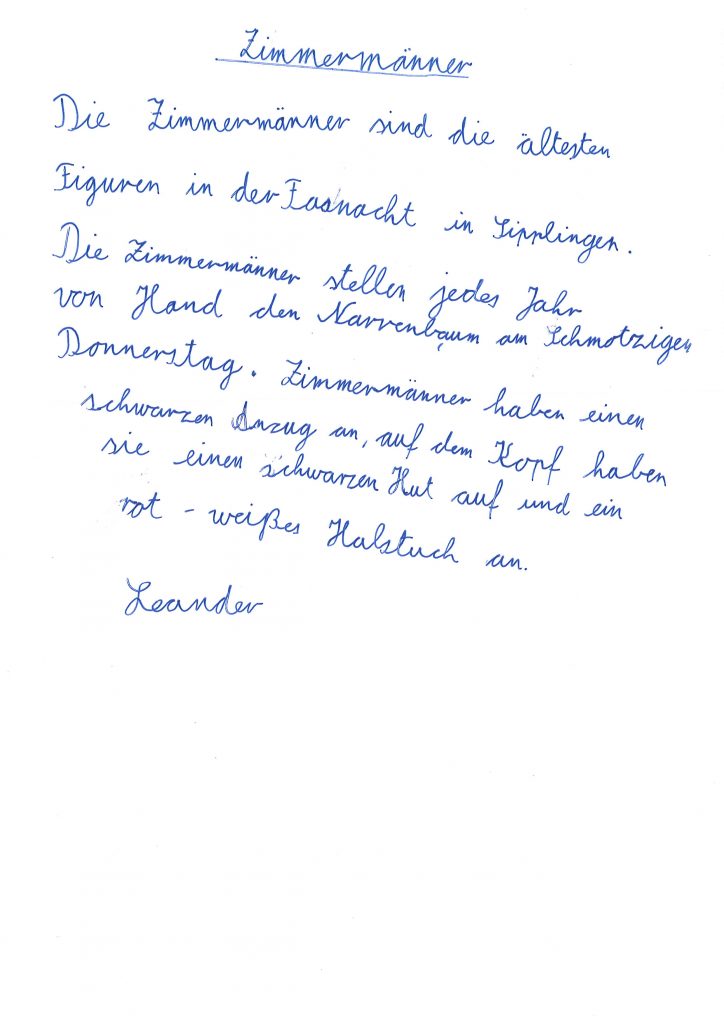 Zimmermänner
Die Zimmermänner sind die ältesten
Figuren in der Fasnacht in Sipplingen.
Die Zimmermänner stellen jedes Jahr
von Hand den Narrenbaum am Schmotzigen
Donnerstag. Zimmermänner haben einen
schwarzen Anzug an, auf dem Kopf haben
sie einen schwarzen Hut auf und ein
rot - weißes Halstuch an.
Leander